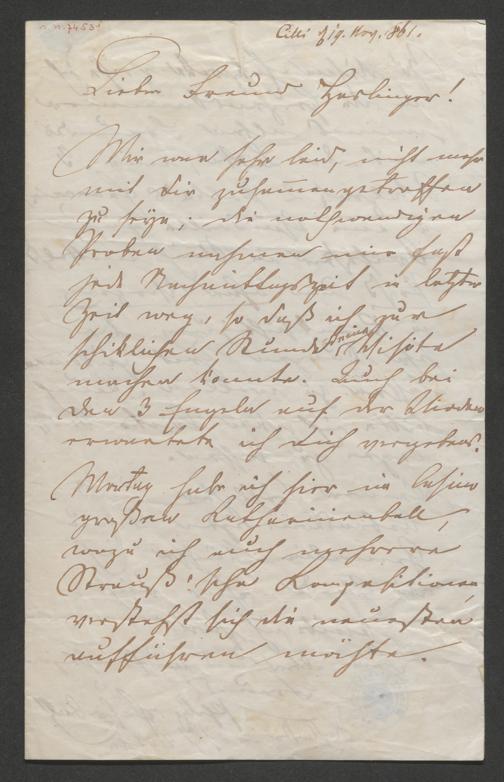 Cilli 19. Nov. 861.
Lieber Freund Haslinger!
Mir war sehr leid, nicht mehr
mit dir zusammengetroffen
zu seyn; die nothwendigen
Proben nahmen mir fast
jede Nachmittagszeit in letzter
Zeit weg, so daß ich zur
schiklichen Stunde keine Visite
machen konnte. Auch bei
den 3 Engeln auf der Wieden
erwartete ich dich vergebens.
Montag habe ich hier im Casino
großen Katharinenball,
wozu ich auch mehrere
Strauß'sche Kompositionen
versteht sich die neuesten
aufführen möchte.